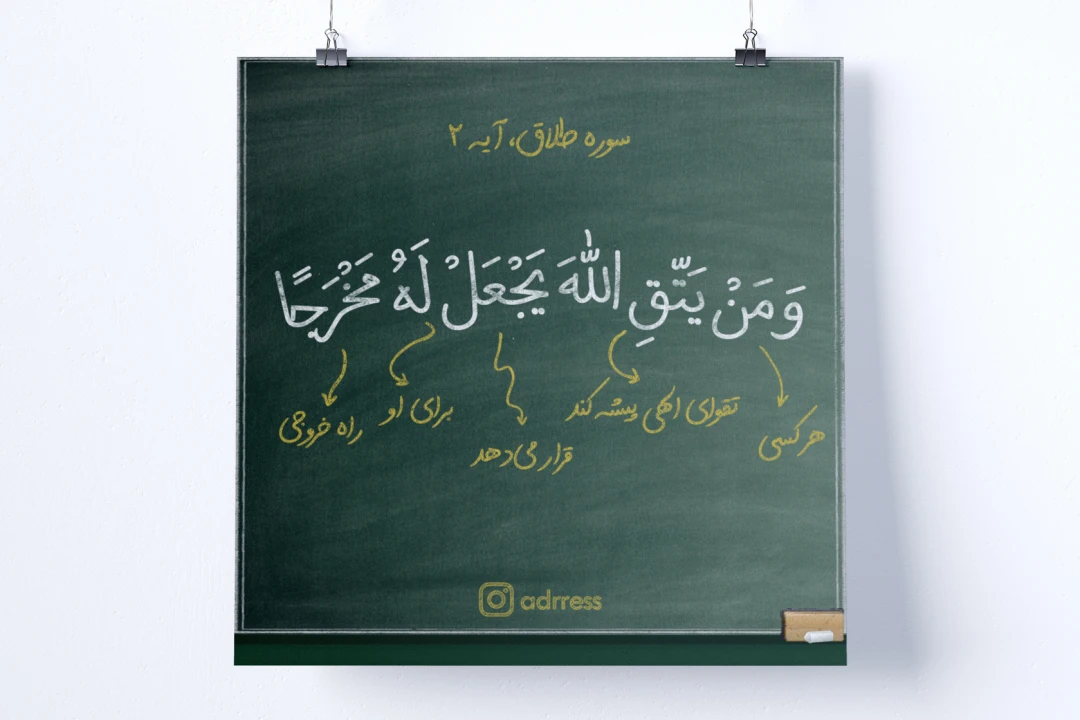 سوره طلاق، آیه ۲
وَمَنْ يَتَّقِ اللّٰهَ يَجْعَلْ لَهُ مَخْرَجًا
هر کسی
تقوای الهی پیشه کند
قرار می‌دهد
برای او
راه خروجی
adrress